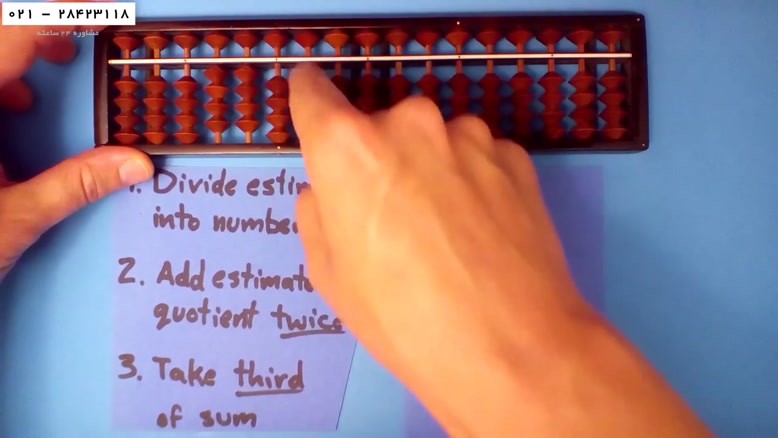 ۰۲۱ - ۲۸۴۲۳۱۱۸
مشاوره ۲۴ ساعته
1. Divide
into
2. Add estimate
quotient twice
3. Take third
of sum